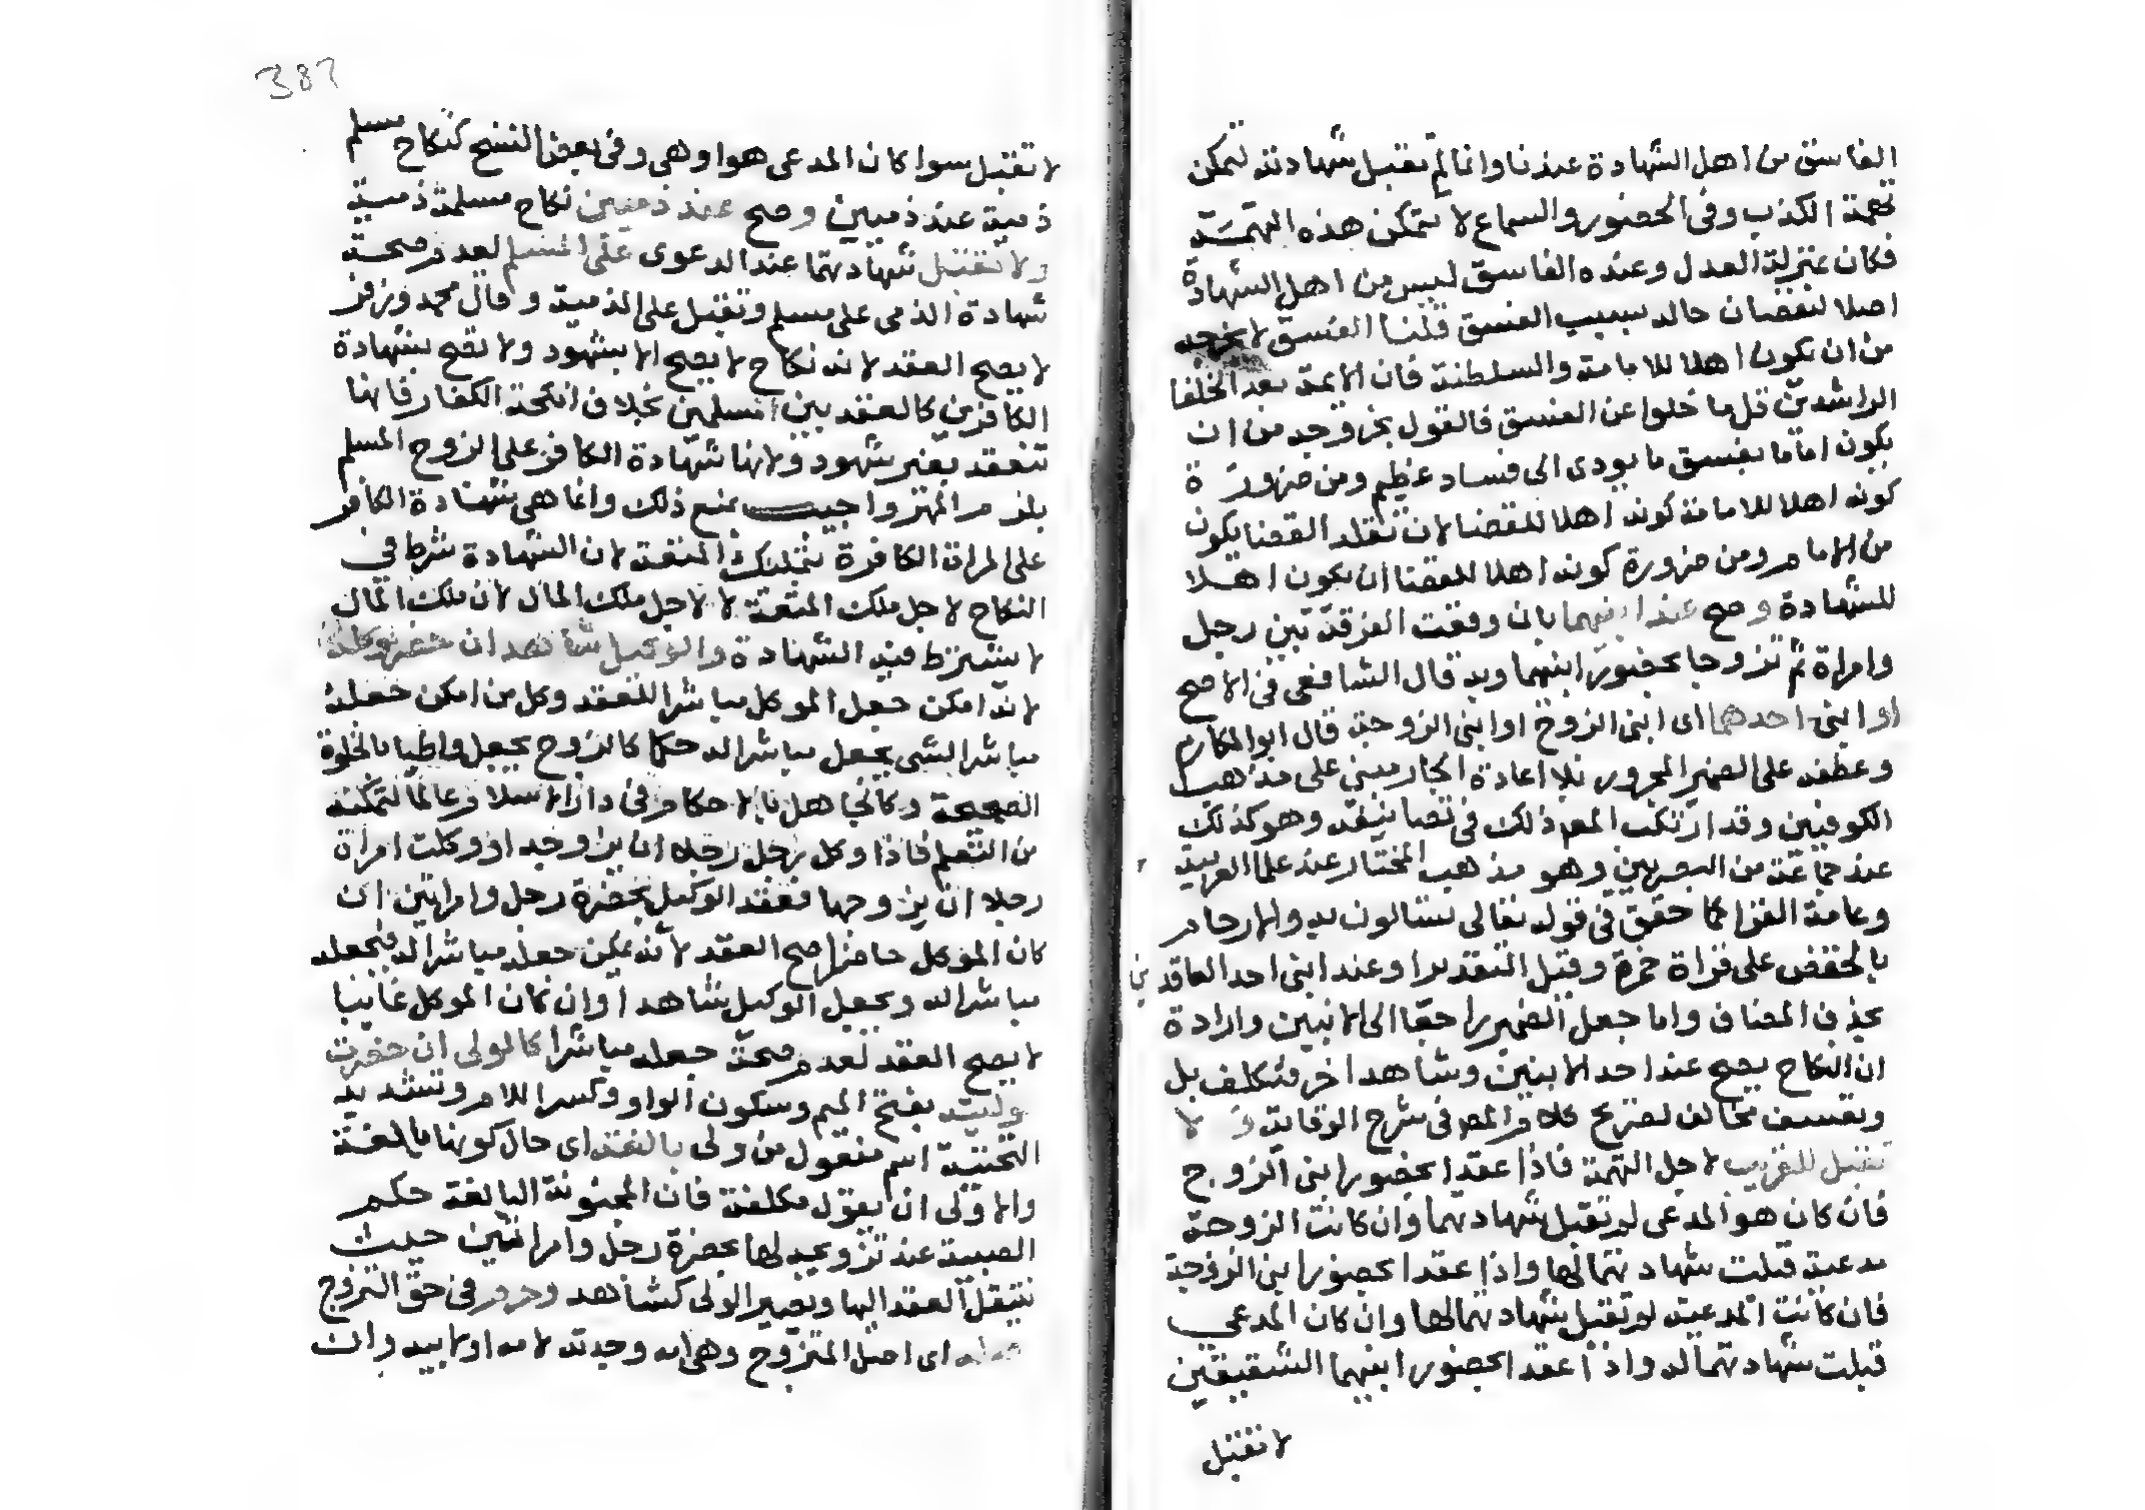 الفاسق من اهل الشهادة عندنا وانما لم تقبل شهادته لتمكن
تهمة الكذب وفي الحضور والسماع لا تتمكن هذه التهمة
فكان بمنزلة العدل وعنده الفاسق ليس من اهل الشهادة
اصلا لنقصان حاله بسبب الفسق قلنا الفسق لا يخرجه
من ان يكون اهلا للامامة والسلطنة فان الايمة بعد الخلفا
الراشدين قل ما خلوا عن الفسق فالقول بخروجه من ان
يكون اماما بفسق ما يودى الى فساد عظيم ومن ضرورة
كونه اهلا للامامة كونه اهلا للقضا لان تقلد القضا يكون
من الامام ومن ضرورة كونه اهلا للقضا ان يكون اهلا
للشهادة وصح عند ابنيهما بان وقعت الفرقة بين رجل
وامراة ثم تزوجا بحضور ابنيهما وبه قال الشافعى فى الاصح
او ابنى احدهما اى ابنى الزوج او ابنى الزوجة قال ابو المكارم
وعطفه على الضمير المجرور بلا اعادة الجار مبنى على مذهب
الكوفيين وقد ارتكب المص ذلك فى تصانيفه وهو كذلك
عند جماعة من البصريين وهو مذهب المختار عند علما العربية
وعامة القرا كما حقق فى قوله تعالى تسالون به والارحام
بالخفض على قراة حمزة وقيل التقدير او عند ابنى احد العاقدين
بحذف المضاف واما جعل الضمير راجعا الى الابنين وارادة
ان النكاح يصح عند احد الابنين وشاهد اخر فتكلف بل
وتعسف مخالف لصريح كلام المص فى شرح الوقاية و لا
تقبل للقريب لاجل التهمة فاذا عقدا بحضور ابنى الزوج
فان كان هو المدعى لم تقبل شهادتهما وان كانت الزوجة
مدعية قبلت شهادتهما لها واذا عقدا بحضور ابنى الزوجة
فان كانت المدعية لم تقبل شهادتهما لها وان كان المدعي
قبلت شهادتهما له واذا عقدا بحضور ابنيهما الشقيقين
لا تقبل
387
لا تقبل سوا كان المدعى هو او هى وفى بعض النسخ كنكاح مسلم
ذمية عند ذميين وصح عند ذميين نكاح مسلمة ذمية
ولا تقبل شهادتهما عند الدعوى على المسلم لعدم صحة
شهادة الذمى على مسلم وتقبل على الذمية وقال محمد وزفر
لا يصح العقد لانه نكاح لا يصح الا بشهود ولا تصح بشهادة
الكافرين كالعقد بين المسلمين بخلاف انكحة الكفار فانها
تنعقد بغير شهود ولانها شهادة الكافر على الزوج المسلم
بلزوم المهر واجيب بمنع ذلك وانما هى شهادة الكافر
على المراة الكافرة بتملك المتعة لان الشهادة شرط فى
النكاح لاجل ملك المتعة لا لاجل ملك المال لان ملك المال
لا يشترط فيه الشهادة والوكيل شاهد ان حضر موكله
لانه امكن جعل الموكل مباشرا للعقد وكل من امكن جعله
مباشرا لشى يجعل مباشرا له حكما كالزوج يجعل واطيا بالخلوة
الصحيحة وكالجاهل بالاحكام فى دار الاسلام عالما لتمكنه
من التعلم فاذا وكل رجل رجلا ان يزوجه او وكلت امراة
رجلا ان يزوجها فعقد الوكيل بحضرة رجل وامراتين ان
كان الموكل حاضرا صح العقد لانه يمكن جعله مباشرا له فيجعله
مباشرا له ويجعل الوكيل شاهدا وان كان الموكل غايبا
لا يصح العقد لعدم صحة جعله مباشرا كالولى ان حضرت
موليته بفتح الميم وسكون الواو وكسر اللام وتشديد
التحتية اسم مفعول من ولى بالغة اى حال كونها بالغة
والاولى ان يقول مكلفة فان المجنونة البالغة حكم
الصبية عند تزويجه لها بحضرة رجل وامراتين حيث
ينتقل العقد اليها ويصير الولى كشاهد وحرم فى حق التزوج
اصله اى اصل المتزوج وهى امه وجدته لامه او لابيه وان